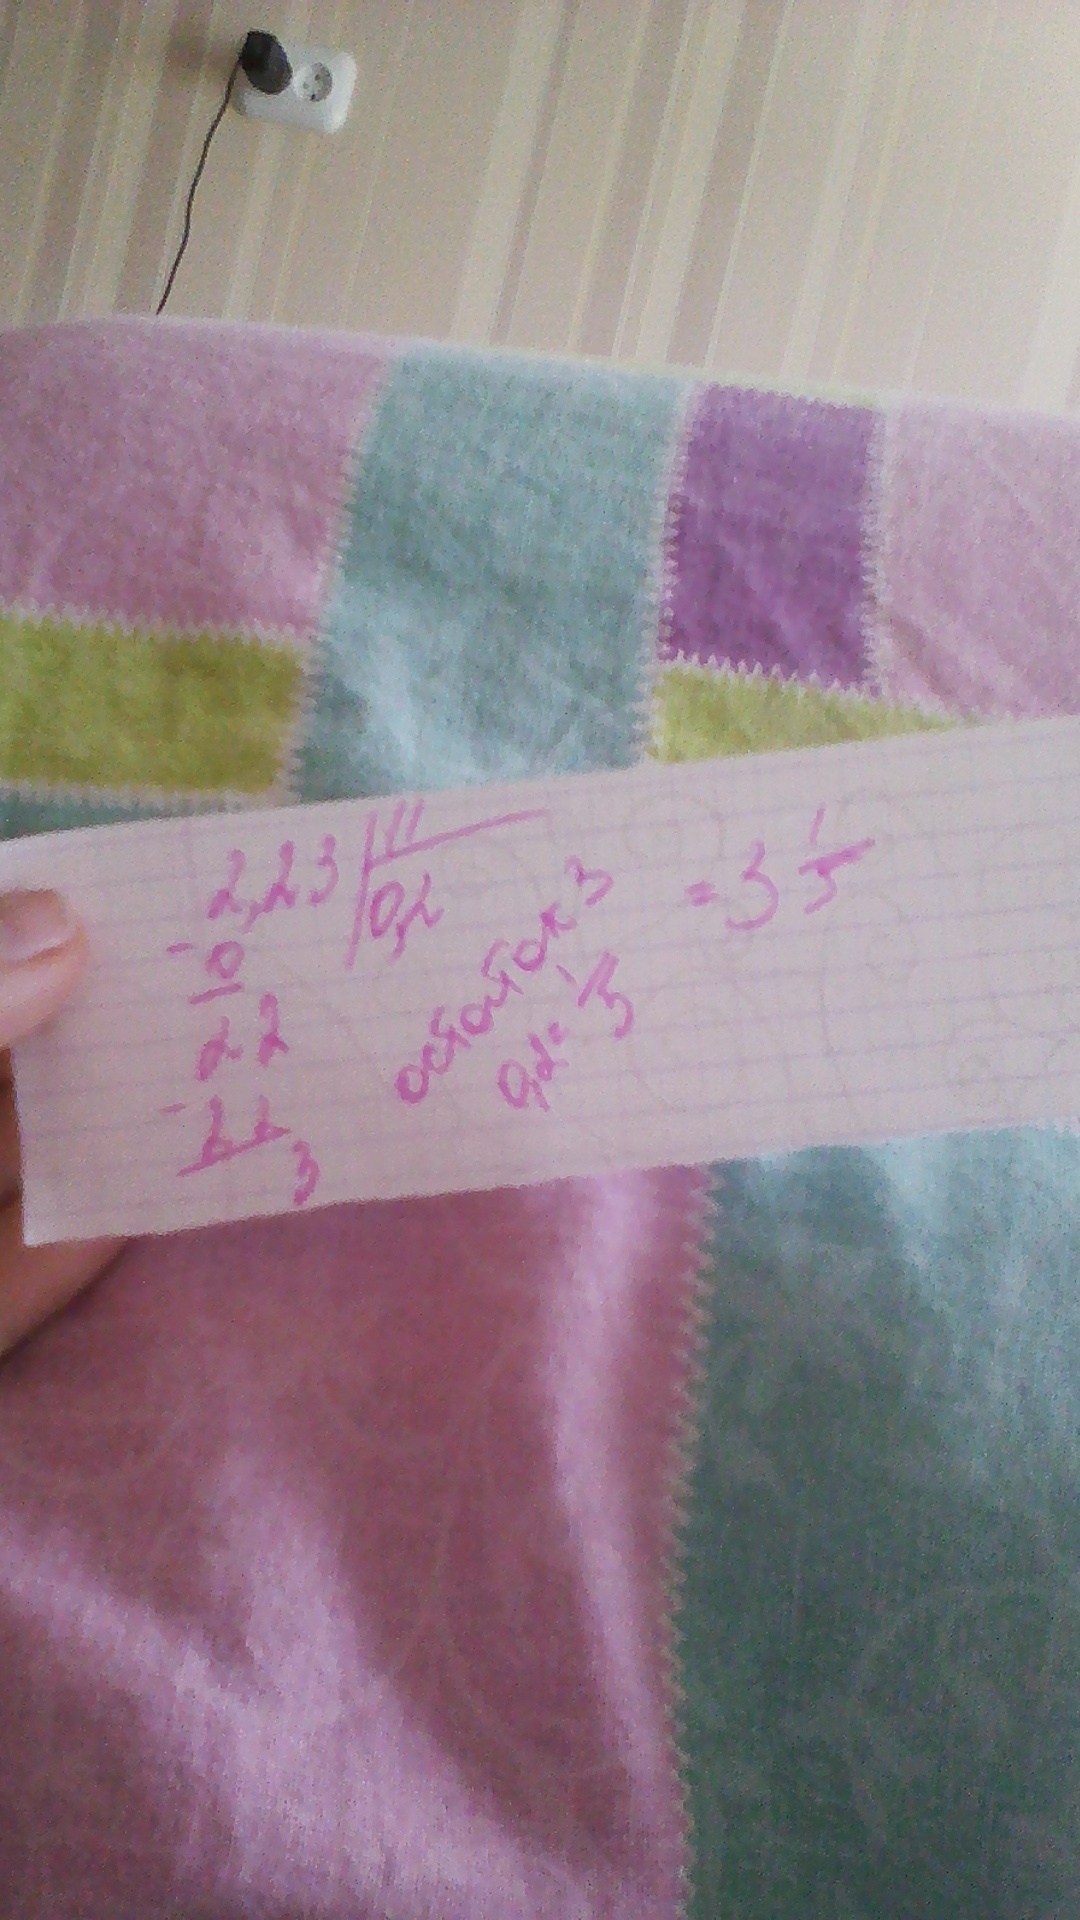 2,23 | 11
0,2
- 0
22
- 22
3
остаток 3
0,2 = 1/5
= 3 1/5